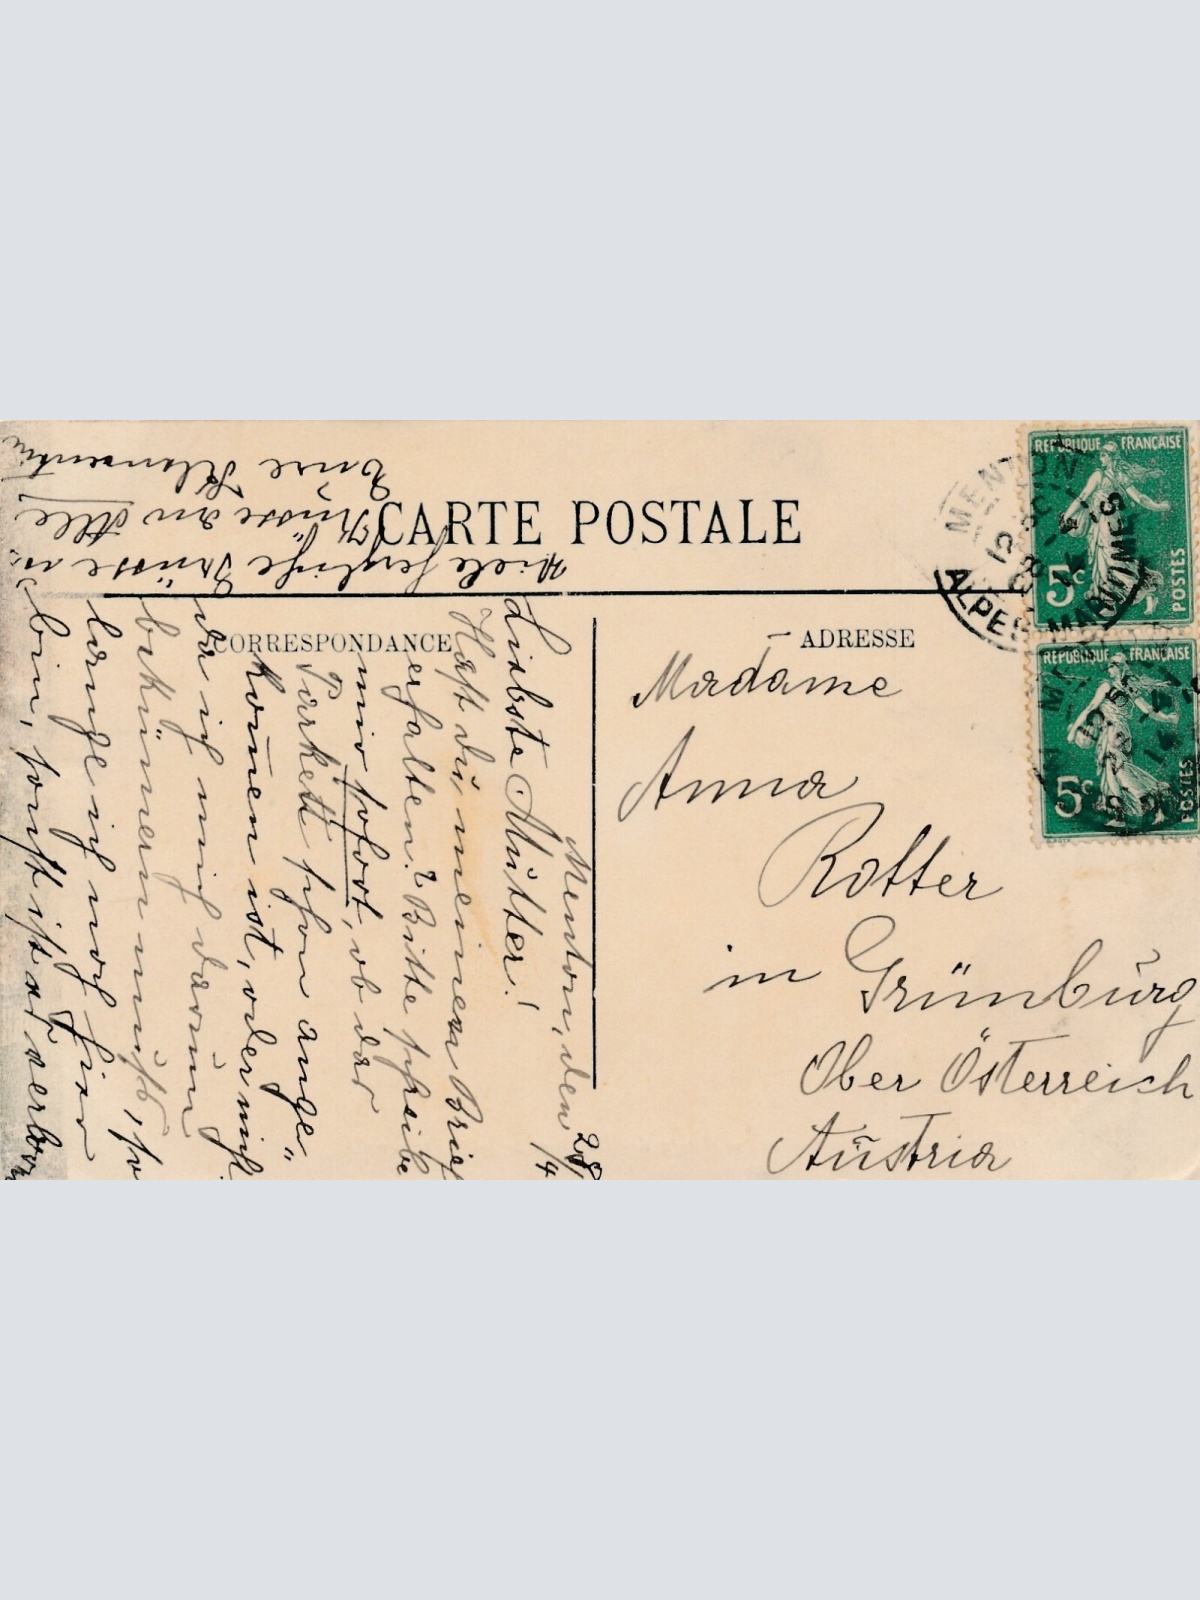 CARTE POSTALE
CORRESPONDANCE
ADRESSE
Madame
Anna
Rotter
in Grünburg
Ober Österreich
Austria
Menton, den 28/4
Liebste Mutter!
Hast du meinen Brief
erhalten? Bitte schreibe
mir sofort, ob das
Parkett schon ange"
kommen ist, oder nicht
da ich mich darum
bekümern muß, so
lange ich noch hier
bin, sonst ist es verlor
Viele herzliche Grüsse
Grüsse an Alle
Eure
MENTON
ALPES MARITIMES
REPUBLIQUE FRANÇAISE
5c
POSTES
REPUBLIQUE FRANÇAISE
5c
POSTES